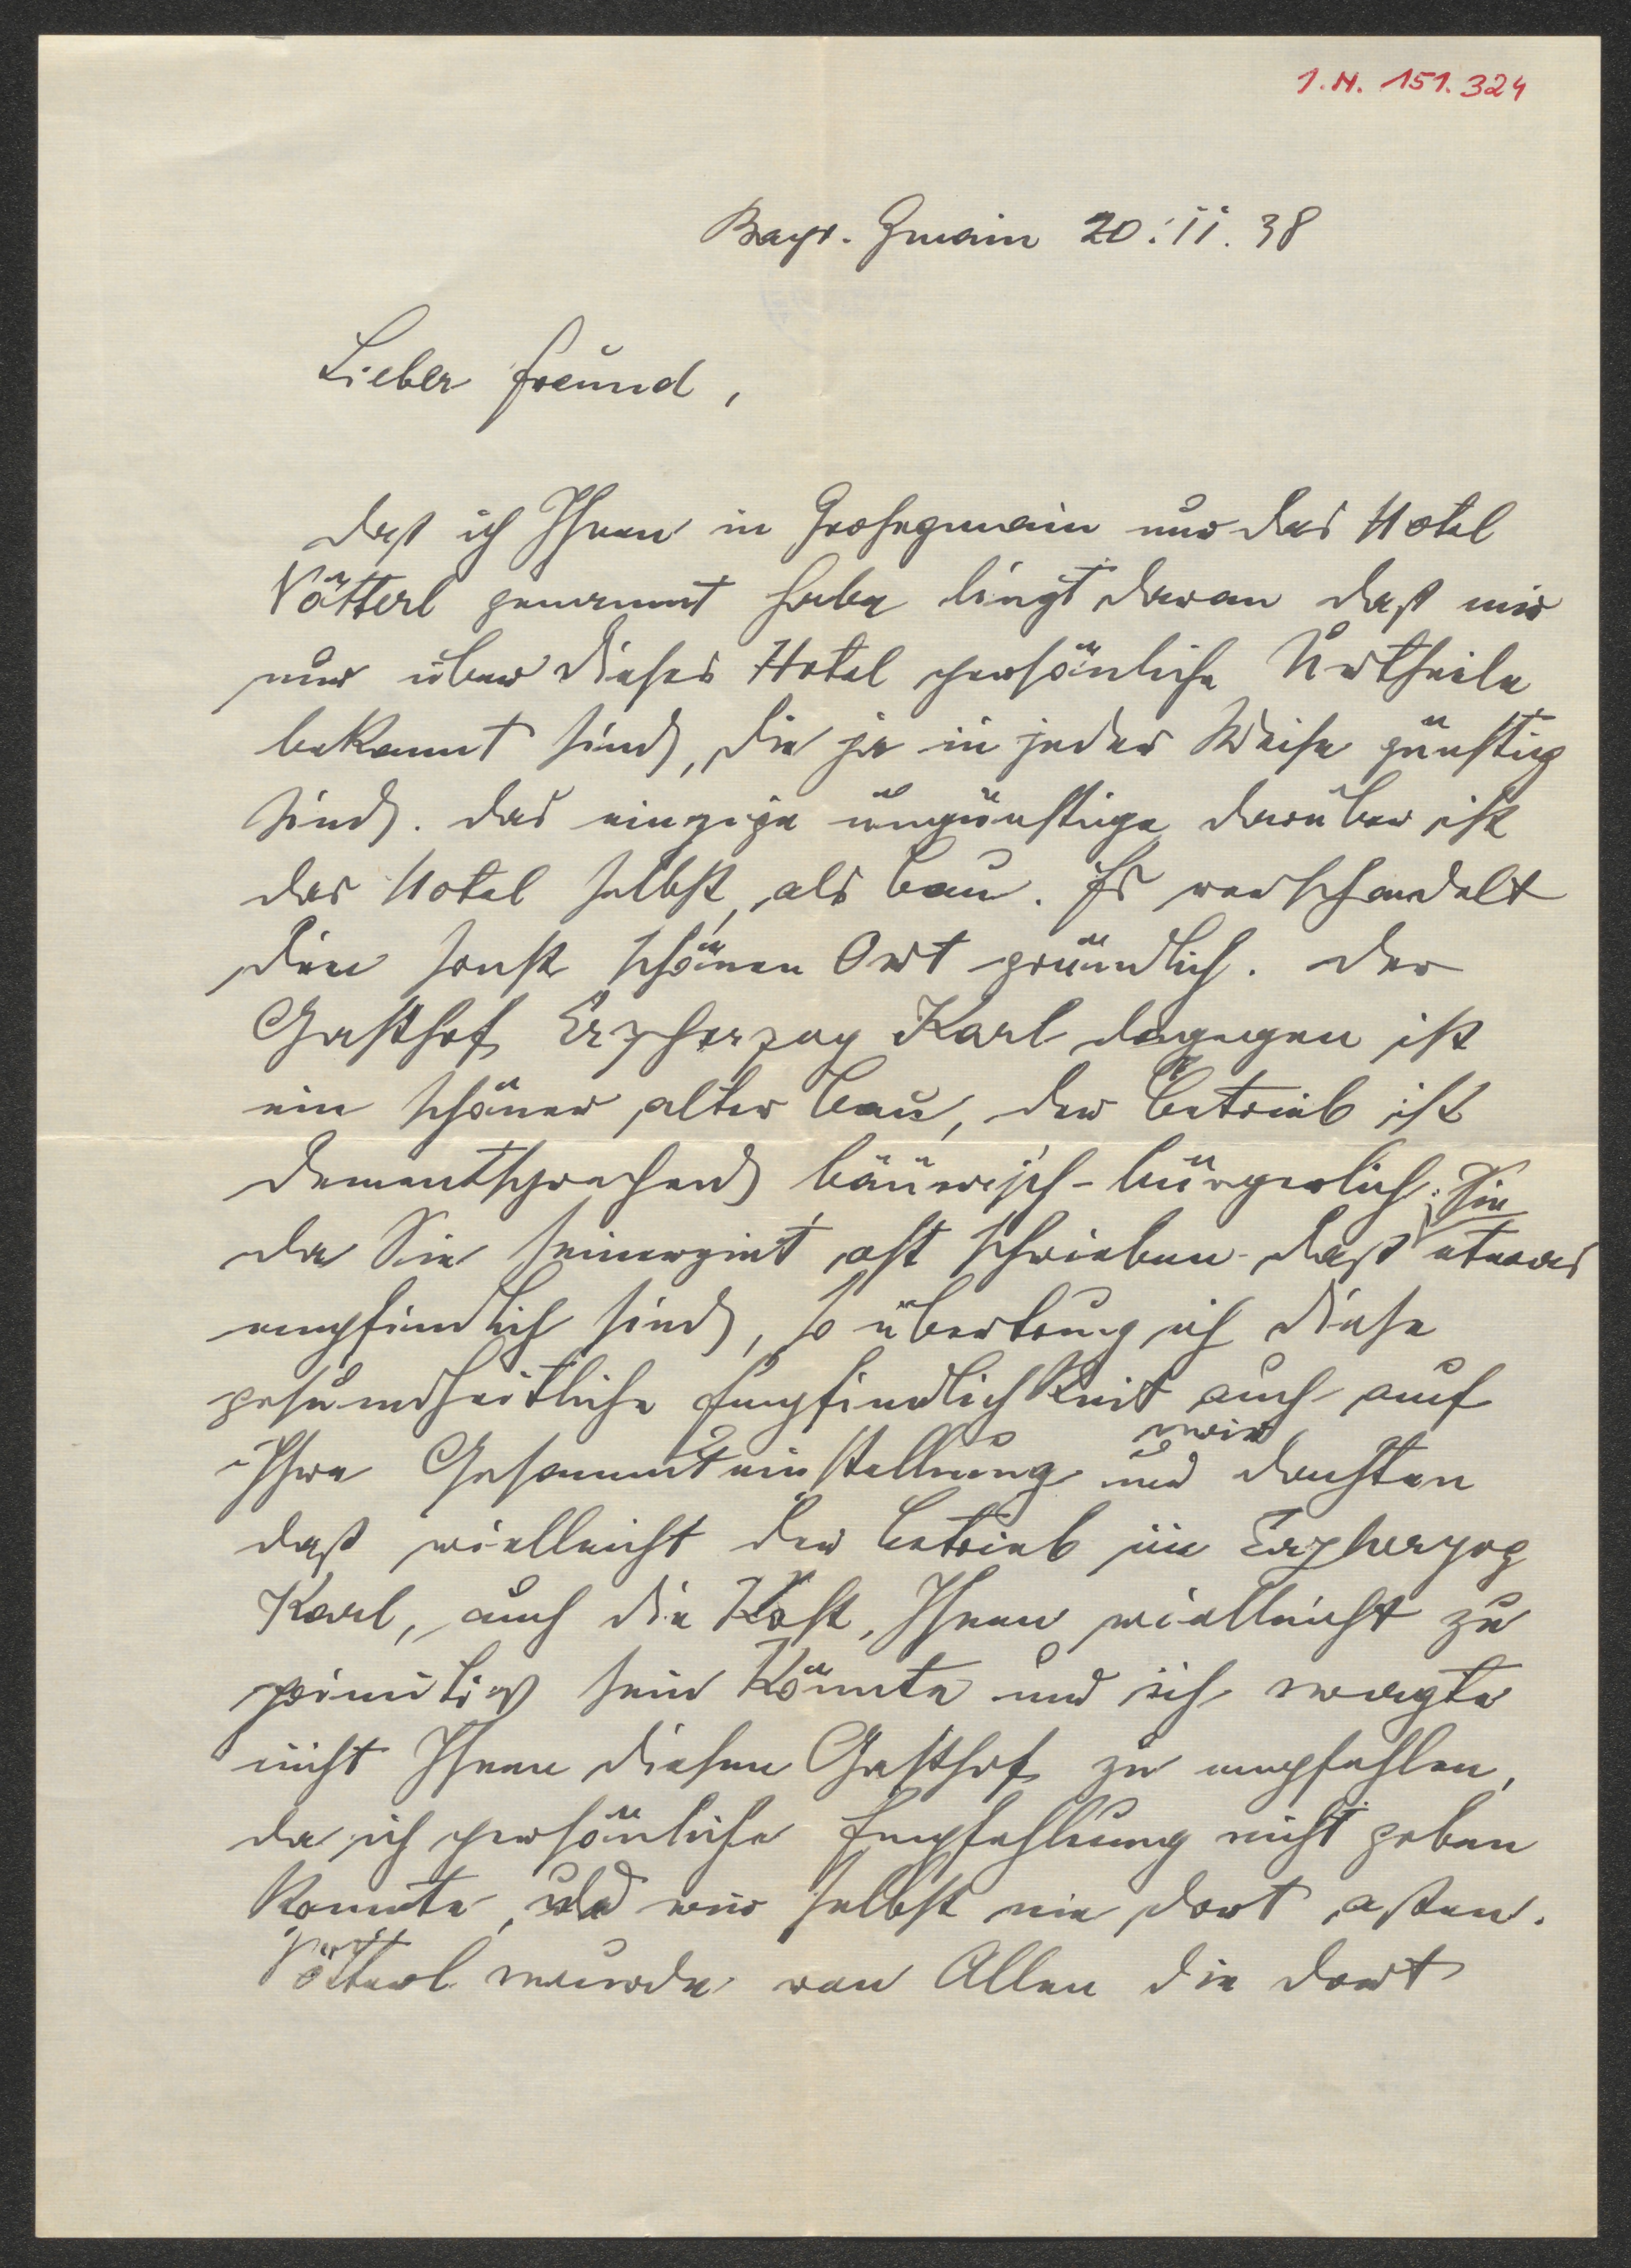 I.N. 151.324
Bayr. Gmain 20. II. 38
Lieber Freund,
daß ich Ihnen in Großgmain nur das Hotel
Vötterl genannt habe liegt daran daß mir
nur über dieses Hotel persönliche Urtheile
bekannt sind, die ja in jeder Weise günstig
sind. Das einzige ungünstige darüber ist
das Hotel selbst, als Bau. Es verschandelt
den sonst schönen Ort gründlich. Der
Gasthof Erzherzog Karl dagegen ist
ein schöner alter Bau, der Betrieb ist
dementsprechend bäuerisch-bürgerlich.
da Sie seinerzeit oft schrieben daß Sie etwas
empfindlich sind, so übertrug ich diese
gesundheitliche Empfindlichkeit auch auf
Ihre Gesammteinstellung und wir dachten
daß vielleicht der Betrieb im Erzherzog
Karl, auch die Kost, Ihnen vielleicht zu
primitiv sein könnte und ich wagte
nicht Ihnen diesen Gasthof zu empfehlen,
da ich persönliche Empfehlung nicht geben
konnte, und wir selbst nie dort aßen.
Vötterl wurde von Allen die dort